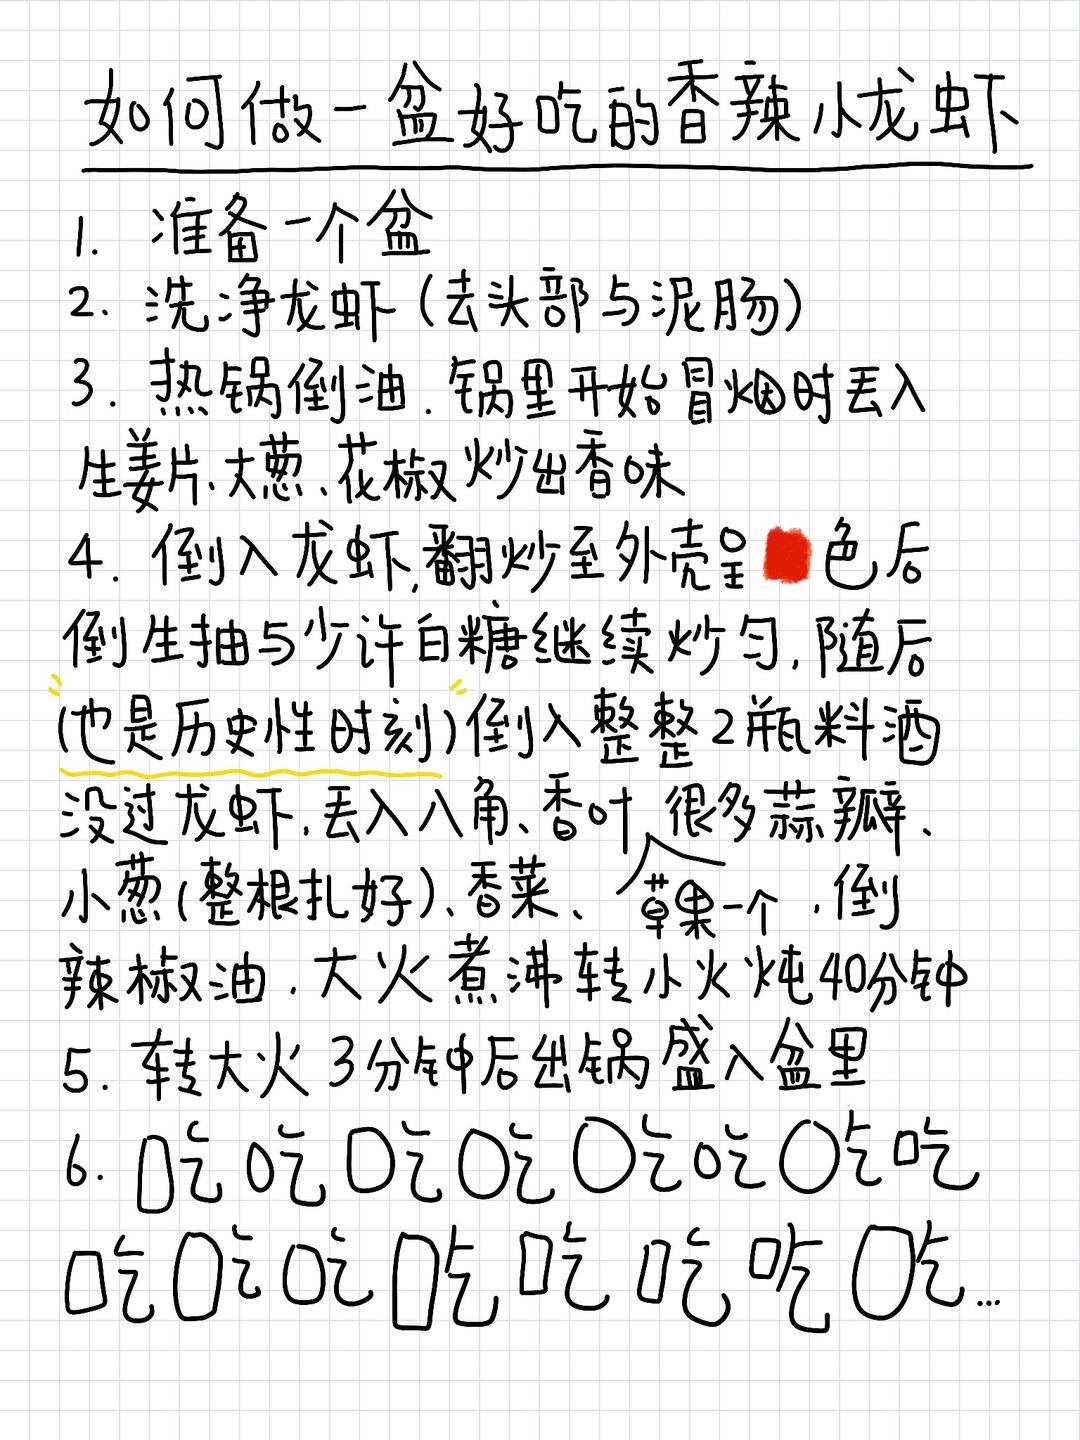 如何做一盆好吃的香辣小龙虾
1. 准备一个盆
2. 洗净龙虾(去头部与泥肠)
3. 热锅倒油.锅里开始冒烟时丢入
生姜片、大葱、花椒炒出香味
4. 倒入龙虾,翻炒至外壳呈色后
倒生抽与少许白糖继续炒匀.随后
(也是历史性时刻)倒入整整2瓶料酒
没过龙虾.丢入八角、香叶 很多蒜瓣、
小葱(整根扎好)、香菜、草果一个.倒
辣椒油.大火煮沸转小火炖40分钟
5. 转大火3分钟后出锅盛入盆里
6. 吃吃吃吃吃吃吃吃
吃吃吃吃吃吃吃吃...